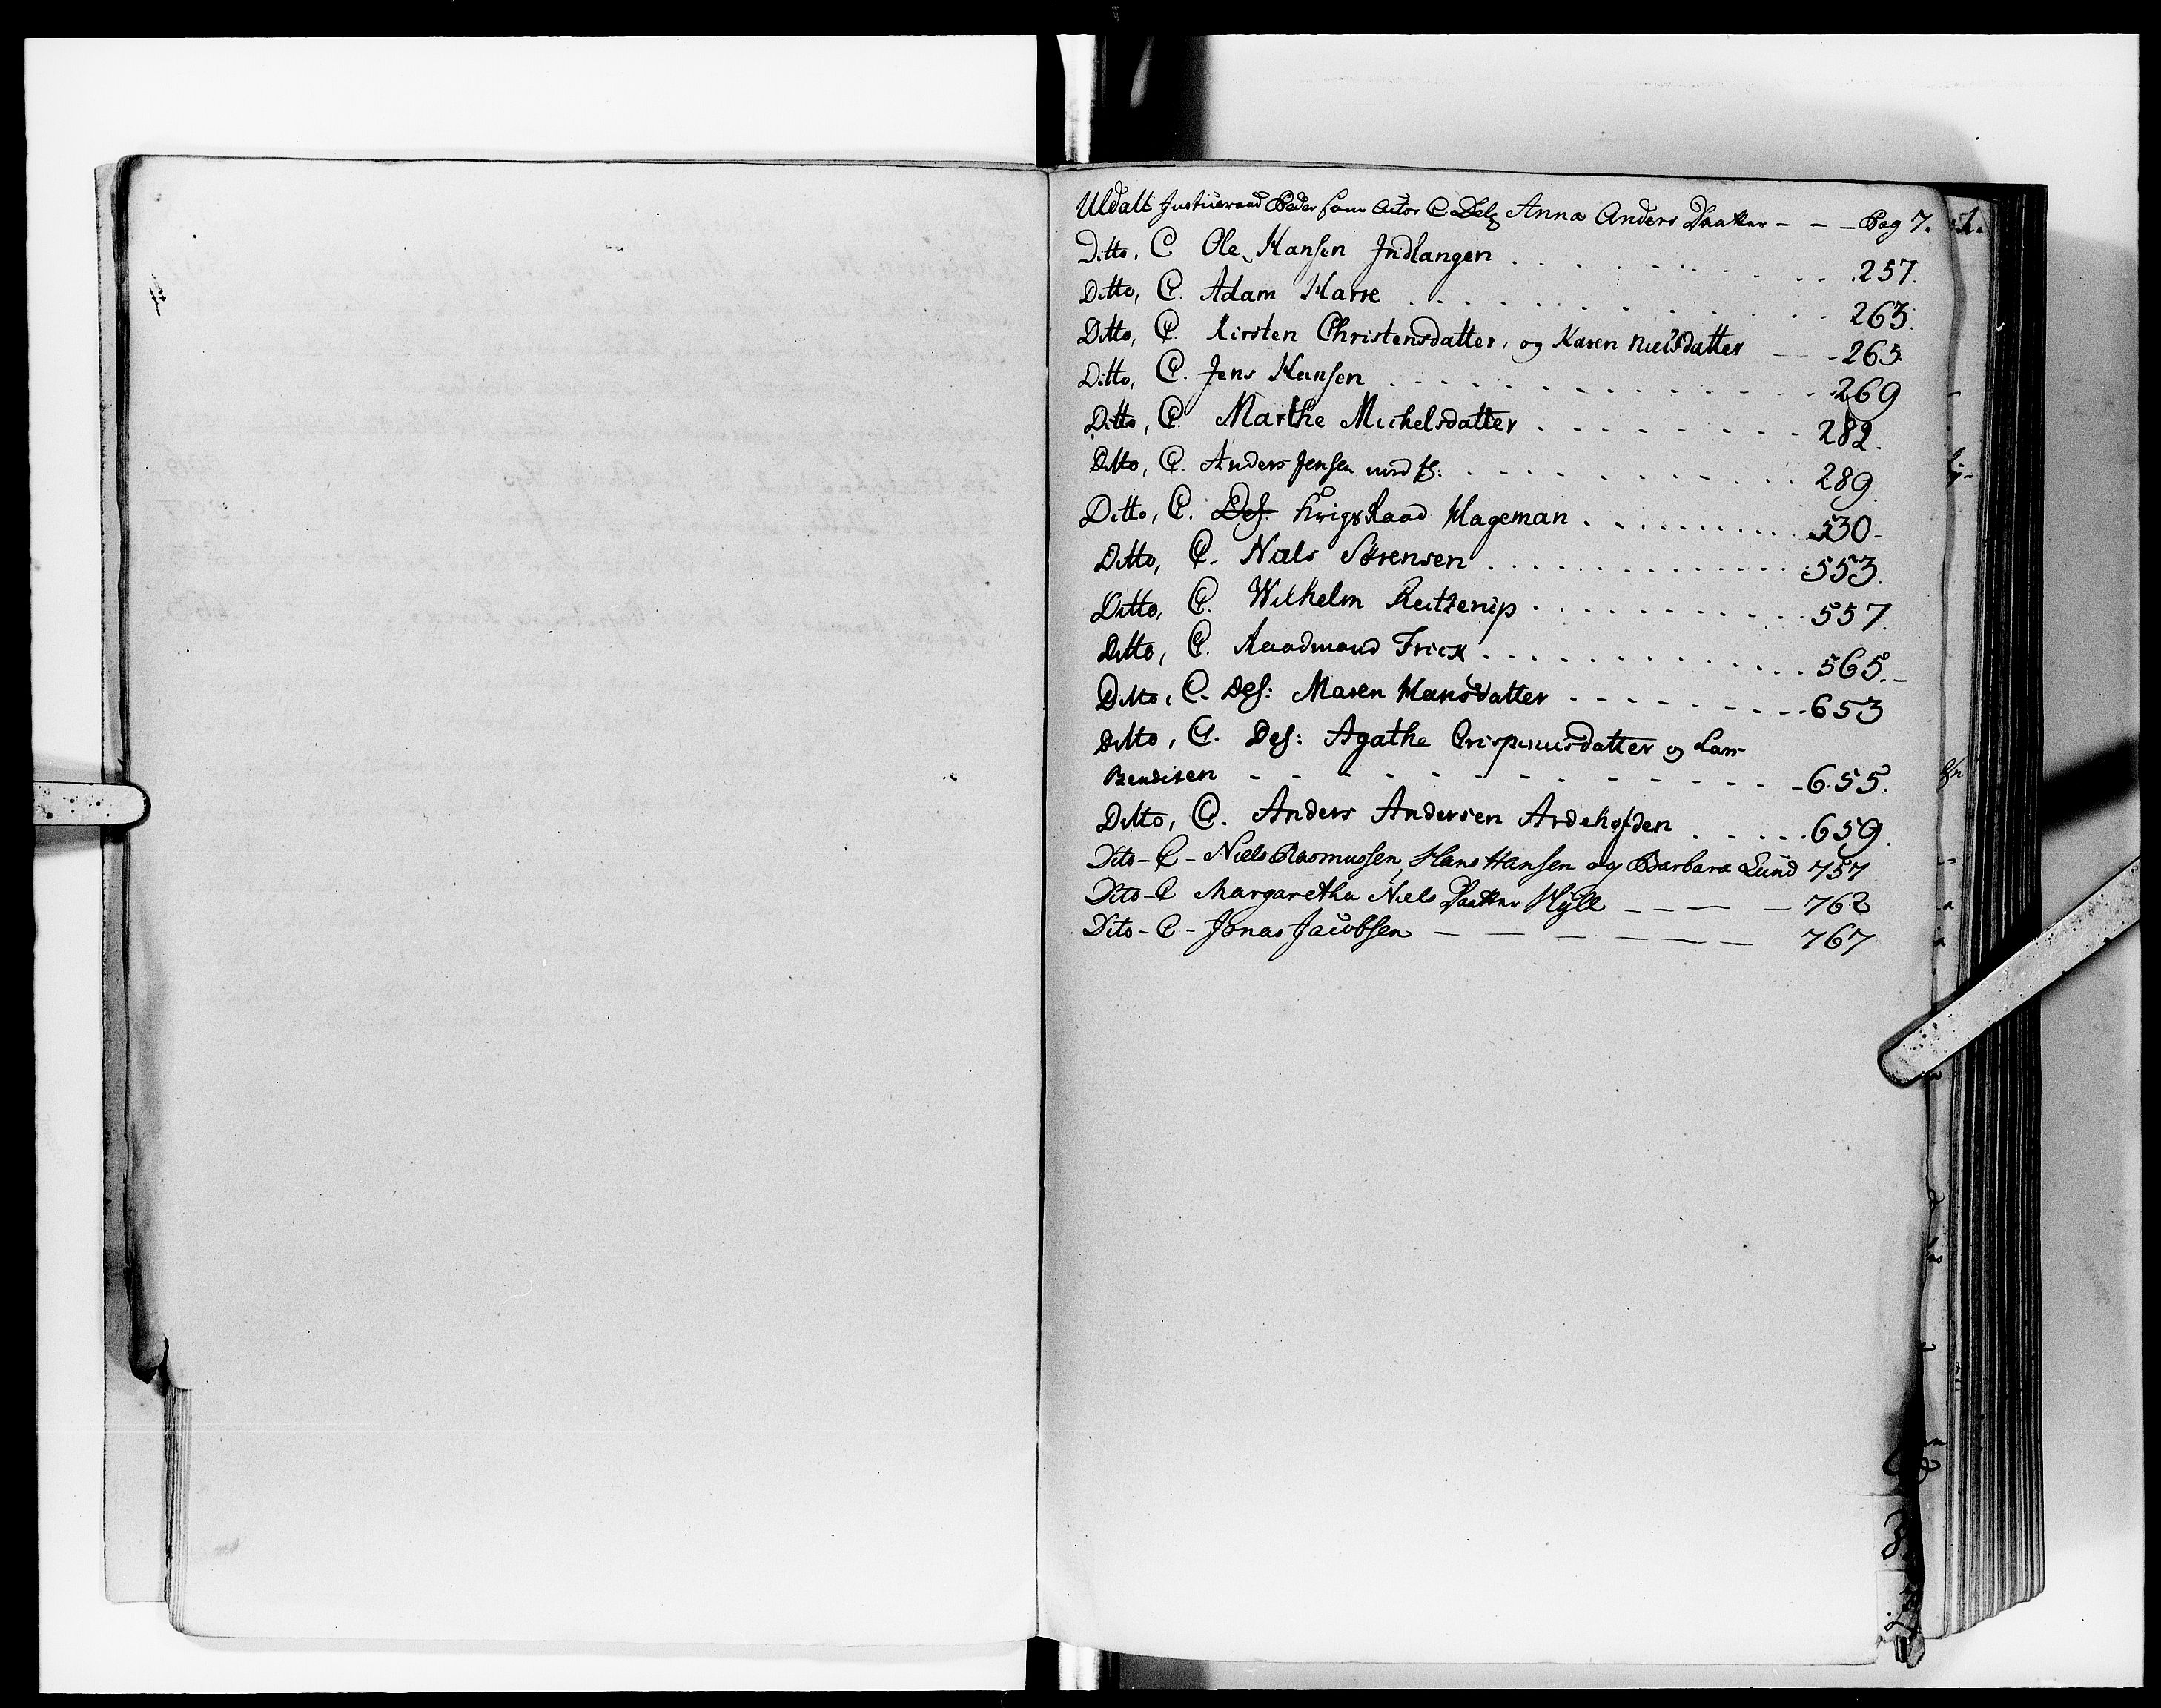 Uldalt Justiceraad Peder som Actor C Delq Anna Anders Daatter - - - Pag 7.
Ditto, C Ole Hansen Indlangen . . . . . . . . 257.
Ditto, C. Adam Harre . . . . . . . . 263.
Ditto, C. Kirsten Christensdatter, og Karen Nielsdatter - - 265.
Ditto, C. Jens Hansen . . . . . . . . 269
Ditto, C. Marthe Michelsdatter . . . . . . . . 282.
Ditto, C. Anders Jensen med fl: . . . . . . . . 289.
Ditto, C. Def: KrigsRaad Hageman . . . . . . . . 530-
Ditto, C. Niels Sørensen . . . . . . . . 553.
Ditto, C. Wilhelm Reitzerip . . . . . . . . 557.
Ditto, C. Raadmand Frick . . . . . . . . 565.-
Ditto, C. Def: Maren Hansdatter - - - - - - - - 653
Ditto, C. Def: Agathe Crispinusdatter og Lars
Bendixen - - - - - - - - - - - - 655.
Ditto, C. Anders Andersen Ardehofden . . . . . 659.
Dito - C - Niels Rasmussen, Hans Hansen og Barbara Lund 757
Dito - C Margaretha Niels Daatter Hÿll - - - - 762
Dito - C - Jonas Jacobsen - - - - - - - 767